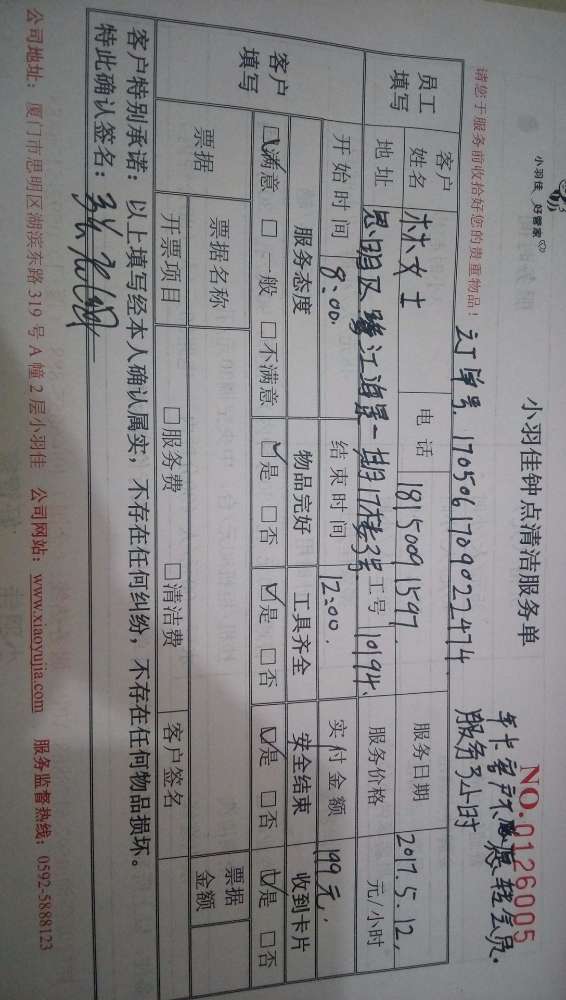 小羽佳 好管家
小羽佳钟点清洁服务单
NO.0126005
年卡客户不愿转会员.
服务3小时
请您于服务前收拾好您的贵重物品！
订单号. 1705061709022474
员工填写 客户姓名 林女士 电话 18150091597. 服务日期 2017.5.12,
地址 思明区鹭江海景一期17楼3号 工号 10194. 服务价格 元/小时
开始时间 8:00. 结束时间 12:00. 实付金额 199元,
客户填写 服务态度 物品完好 工具齐全 安全结束 收到卡片
☑满意 □一般 □不满意 ☑是 □否 ☑是 □否 ☑是 □否 ☑是 □否
票据 票据名称 票据金额
开票项目 □服务费 □清洁费 客户签名
客户特别承诺：以上填写经本人确认属实，不存在任何纠纷，不存在任何物品损坏。
特此确认签名：
公司地址：厦门市思明区湖滨东路 319 号 A 幢 2 层小羽佳 公司网站：www.xiaoyujia.com 服务监督热线：0592-5888123